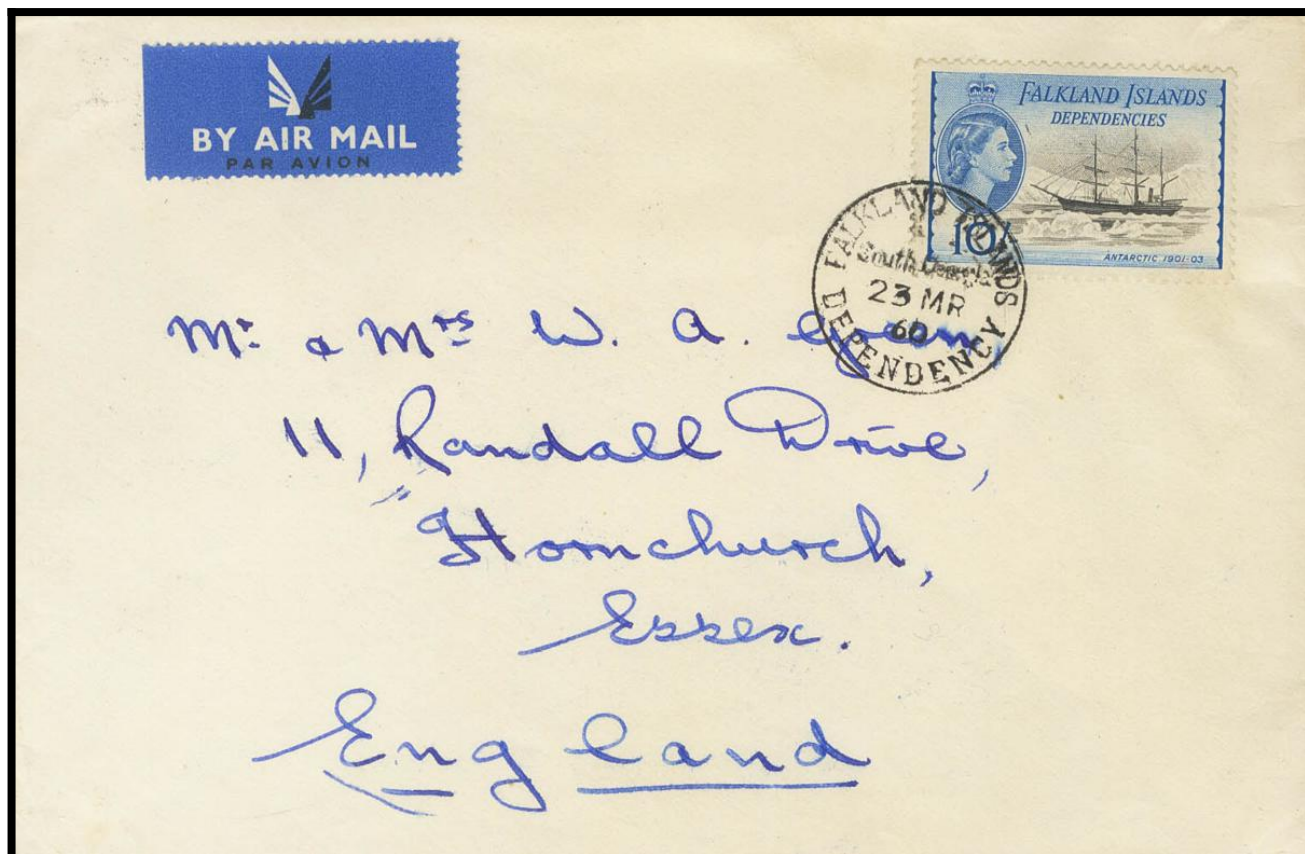 BY AIR MAIL
PAR AVION
FALKLAND ISLANDS
DEPENDENCIES
10/-
ANTARCTIC 1901-03
FALKLAND ISLANDS
South Georgia
23 MR
60
DEPENDENCY
Mr & Mrs W. A.
11, Randall Drive,
Hornchurch,
Essex.
England